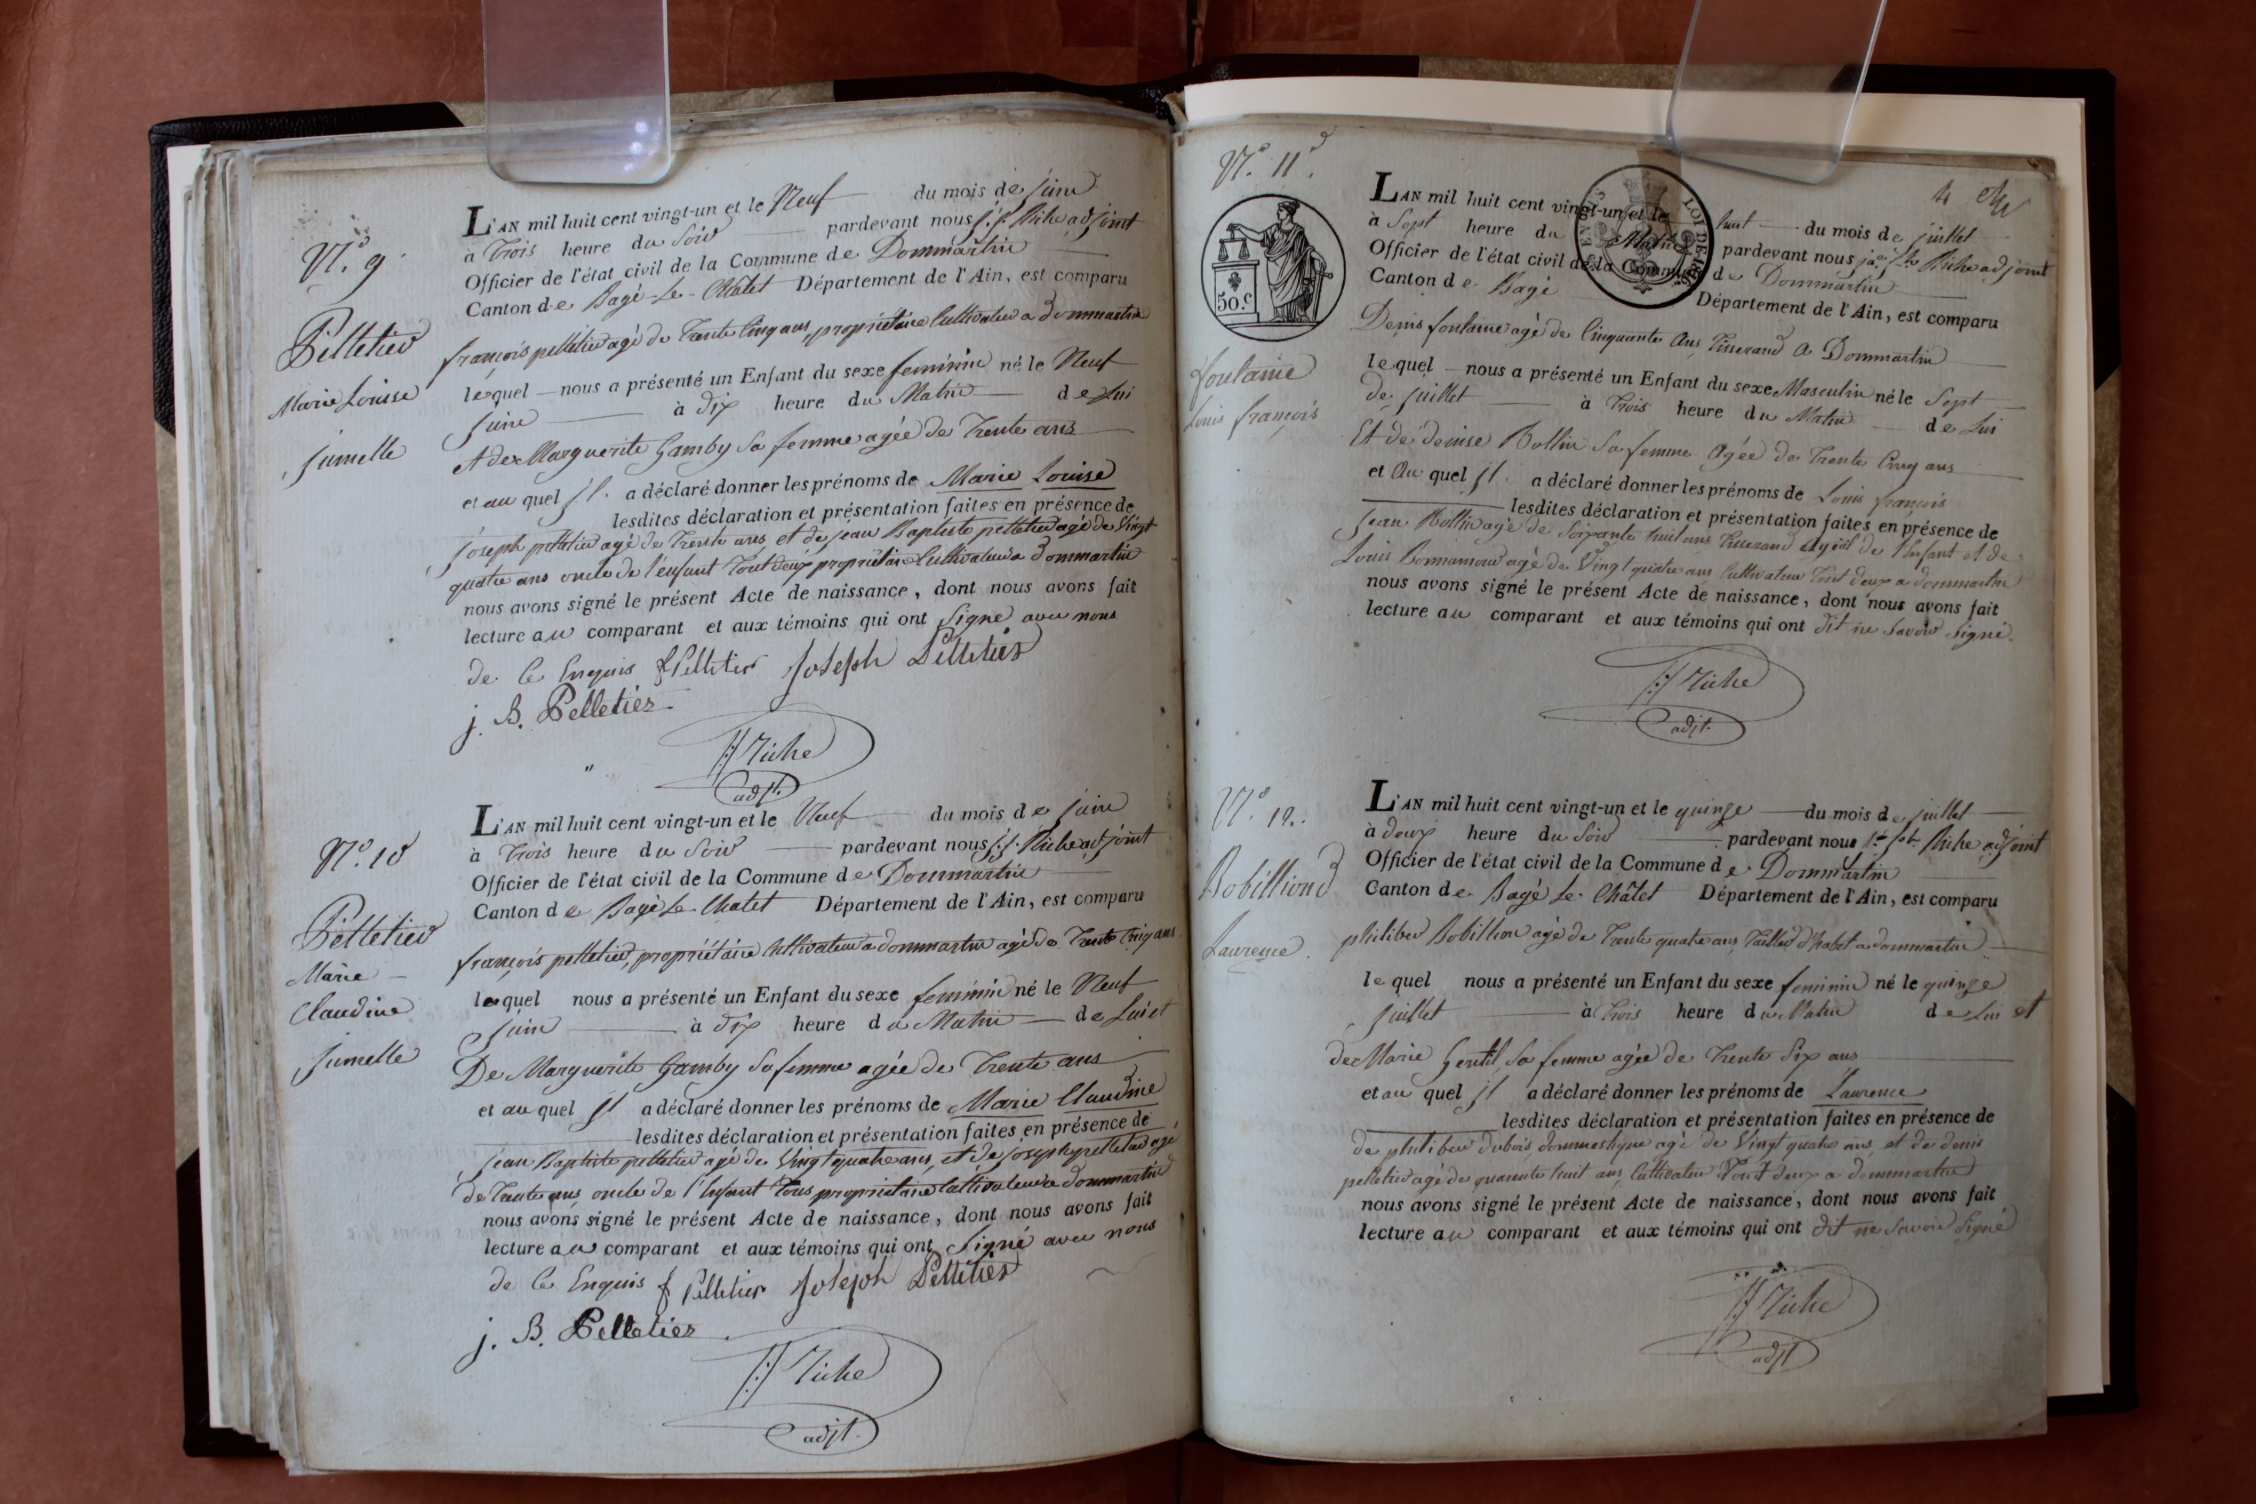 N.° 9.
Pelletier
Marie Louise
jumelle
L'AN mil huit cent vingt-un et le Neuf du mois de juin
à Trois heure du Soir pardevant nous j. f. Riche adjoint
Officier de l'état civil de la Commune de Dommartin
Canton de Bagé-Le-Châtel Département de l'Ain, est comparu
françois pelletier agé de Trente Cinq ans, propriétaire Cultivateur a Dommartin
lequel nous a présenté un Enfant du sexe feminin né le Neuf
juin à dix heure du Matin de Lui
Et de Marguerite Gamby Sa femme agée de Trente ans
et au quel il a déclaré donner les prénoms de Marie Louise
lesdites déclaration et présentation faites en présence de
joseph pelletier agé de Trente ans et de jean Baptiste pelletier agé de Vingt
quatre ans oncle de l'enfant Tout deux propriétaire Cultivateur a Dommartin
nous avons signé le présent Acte de naissance, dont nous avons fait
lecture au comparant et aux témoins qui ont Signé avec nous
de ce Enquis f Pelletier Joseph Pelletier
j. B. Pelletier
Riche
adjt.
N.° 10
Pelletier
Marie
Claudine
jumelle
L'AN mil huit cent vingt-un et le Neuf du mois de juin
à Trois heure du Soir pardevant nous j. f. Riche adjoint
Officier de l'état civil de la Commune de Dommartin
Canton de Bagé Le Chatel Département de l'Ain, est comparu
françois pelletier, propriétaire Cultivateur a dommartin agé de Trente Cinq ans
lequel nous a présenté un Enfant du sexe feminin né le Neuf
Juin à dix heure du Matin de Lui et
De Marguerite Gamby Sa femme agée de Trente ans
et au quel il a déclaré donner les prénoms de Marie Claudine
lesdites déclaration et présentation faites en présence de
jean Baptiste pelletier agé de Vingt quatre ans, et de joseph pelletier agé
de Trente ans, oncle de l'Enfant Tous propriétaire Cultivateur a dommartin
nous avons signé le présent Acte de naissance, dont nous avons fait
lecture au comparant et aux témoins qui ont Signé avec nous
de ce Enquis f Pelletier Joseph Pelletier
j. B. Pelletier
Riche
adjt.
N.° 11.
50.c
LOI DE 1816
4
fontaine
Louis françois
L'AN mil huit cent vingt-un et le huit du mois de juillet
à Sept heure du Matin pardevant nous Riche adjoint
Officier de l'état civil de la Commune de Dommartin
Canton de Bagé Département de l'Ain, est comparu
Denis fontaine agé de Cinquante Ans Tisserand a Dommartin
lequel nous a présenté un Enfant du sexe Masculin né le Sept
de juillet à Trois heure du Matin de Lui
Et de denise Rollin Sa femme Agée de Trente Cinq ans
et Au quel il a déclaré donner les prénoms de Louis françois
lesdites déclaration et présentation faites en présence de
Jean Rollin agé de Soixante huit ans Tisserand ayeul de l'Enfant et de
Louis agé de Vingt quatre ans Cultivateur Tout deux a dommartin
nous avons signé le présent Acte de naissance, dont nous avons fait
lecture au comparant et aux témoins qui ont dit ne Savoir Signé.
Riche
adjt.
N.° 12.
Bobillion
Laurence.
L'AN mil huit cent vingt-un et le quinze du mois de juillet
à deux heure du Soir pardevant nous Riche adjoint
Officier de l'état civil de la Commune de Dommartin
Canton de Bagé Le Châtel Département de l'Ain, est comparu
philiber Bobillion agé de Trente quatre ans, Tailleur d'habit a dommartin
lequel nous a présenté un Enfant du sexe feminin né le quinze
juillet à Trois heure du Matin de Lui et
de Marie Gentil, Sa femme agée de Trente Six ans
et au quel il a déclaré donner les prénoms de Laurence
lesdites déclaration et présentation faites en présence de
de philiber dubois, dommestique agé de Vingt quatre ans, et de denis
pelletier agé de quarente huit ans, Cultivateur Tout deux a dommartin
nous avons signé le présent Acte de naissance, dont nous avons fait
lecture au comparant et aux témoins qui ont dit ne Savoir Signé
Riche
adjt